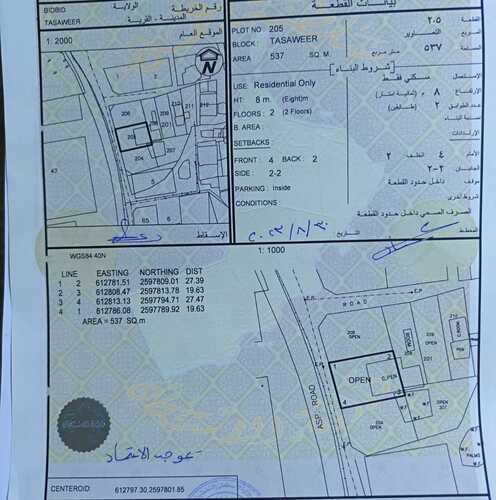 بيانات القطعة
رقم الخريطة
BIDBID
الولاية
TASAWEER
المدينة - القرية
1: 2000
الموقع العام
PLOT NO 205
القطعة ٢٠٥
BLOCK : TASAWEER
المربع التصاوير
AREA 537 SQ. M.
المساحة ٥٣٧ متر مربع
شروط البناء
USE: Residential Only
الاستعمال سكني فقط
HT: 8 m. (Eight)m
الارتفاع ٨ م (ثمانية امتار)
FLOORS : 2 (2 Floors)
عدد الطوابق ٢ (طابقين)
B. AREA :
نسبة البناء
SETBACKS :
الارتدادات
FRONT : 4 BACK : 2
الأمام ٤ الخلف ٢
SIDE : 2-2
الجانبان ٢-٢
PARKING : Inside
موقف داخل حدود القطعة
CONDITIONS :
شروط اخرى
الصرف الصحي داخل حدود القطعة
الإسقاط
التاريخ
المخطط
206
205
204
65
6
1
2
WGS84 40N
1: 1000
LINE EASTING NORTHING DIST
1 2 612781.51 2597809.01 27.39
2 3 612808.47 2597813.78 19.63
3 4 612813.13 2597794.71 27.47
4 1 612786.08 2597789.92 19.63
AREA = 537 SQ.m
E.P.
ROAD
E.P.
ASP. ROAD
OPEN
1
2
3
4
OPEN
201
OPEN
ROOM
W.F.
PALMS
CENTEROID : 612797.30,2597801.85